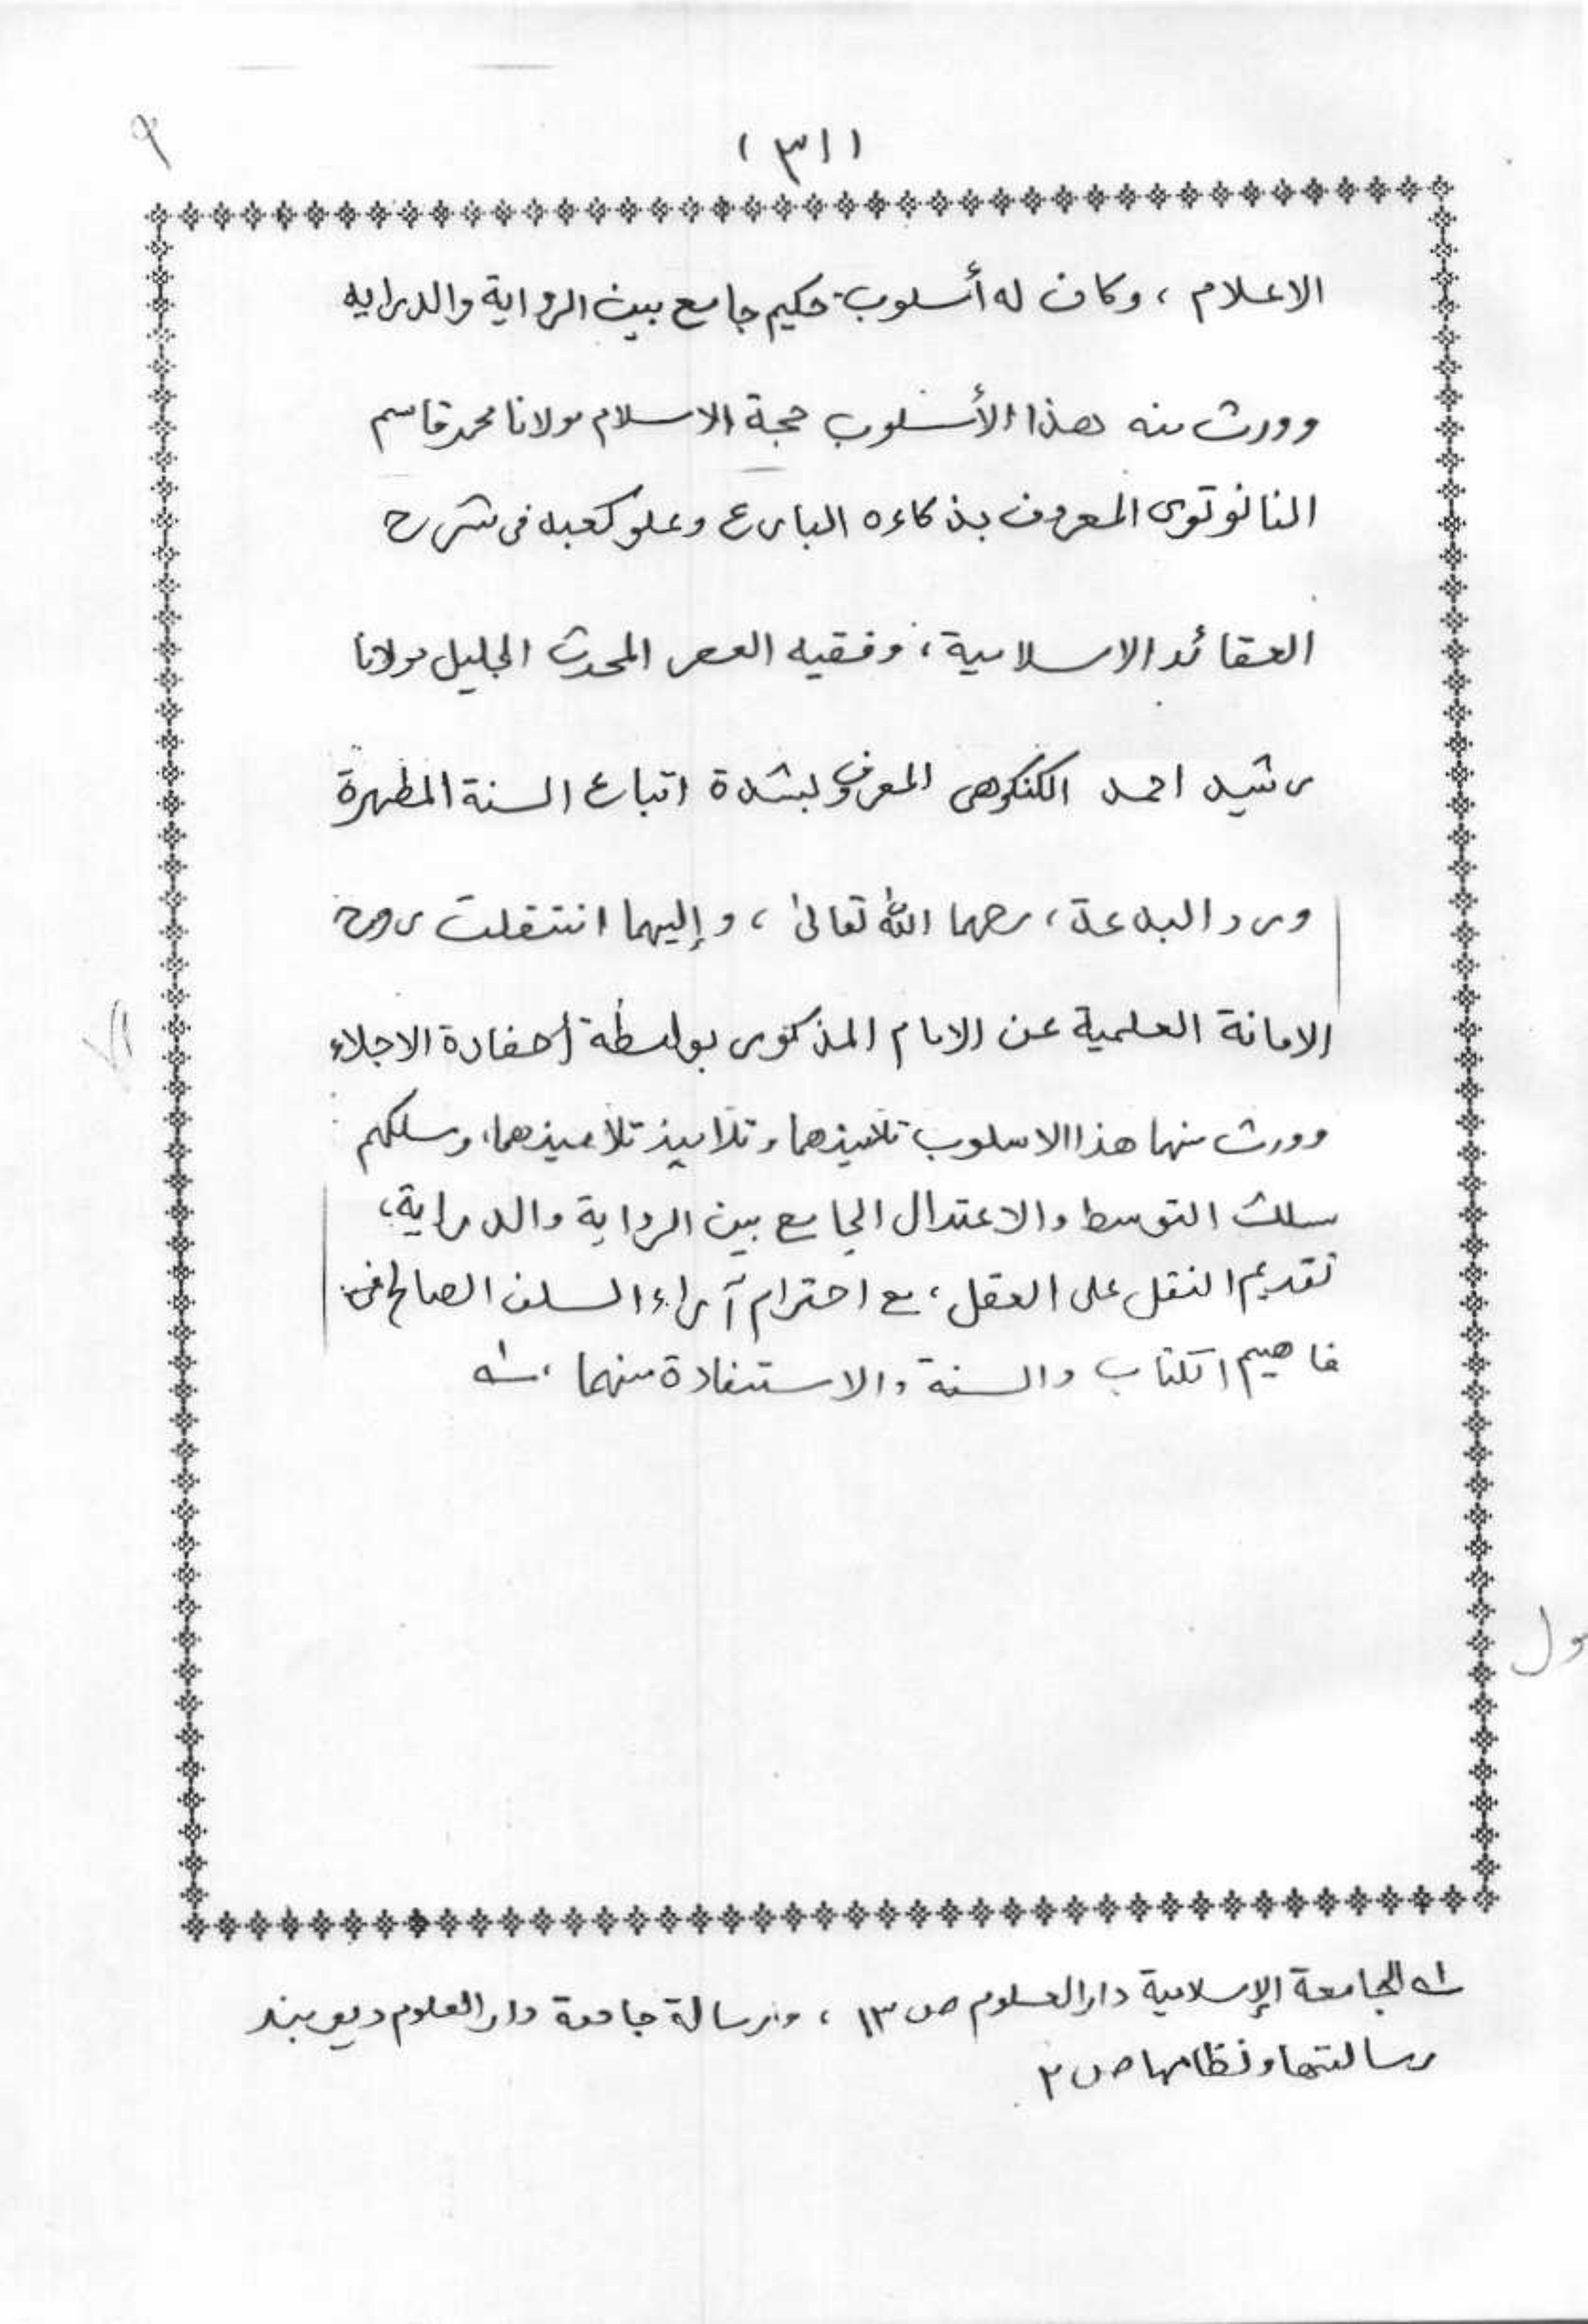 (٣١)
٩
الاعلام ، وكان له أسلوب حكيم جامع بين الرواية والدرايه
وورث منه هذا الأسلوب حجة الاسلام مولانا محمد قاسم
النانوتوى المعروف بذكاءه البارع وعلو كعبه فى شرح
العقائد الاسلامية ، وفقيه العصر المحدث الجليل مولانا
رشيد احمد الكنكوهى المعروف بشدة اتباع السنة المطهرة
ورد البدعة ، رحمهما الله تعالىٰ ، وإليهما انتقلت روح
الامانة العلمية عن الامام المذكور بواسطة أحفادة الاجلاء
وورث منهما هذا الاسلوب تلاميذهما وتلاميذ تلاميذهما، ومسلكهم
مسلك التوسط والاعتدال الجامع بين الرواية والدراية ،
تقديم النقل على العقل ، مع احترام آراء السلف الصالح فى
مفاهيم الكتاب والسنة والاستفادة منهما . ١ـه
١ـه الجامعة الإسلامية دار العلوم ص ١٣ ، ورسالة جامعة دار العلوم ديوبند
رسالتها ونظامها ص ٢